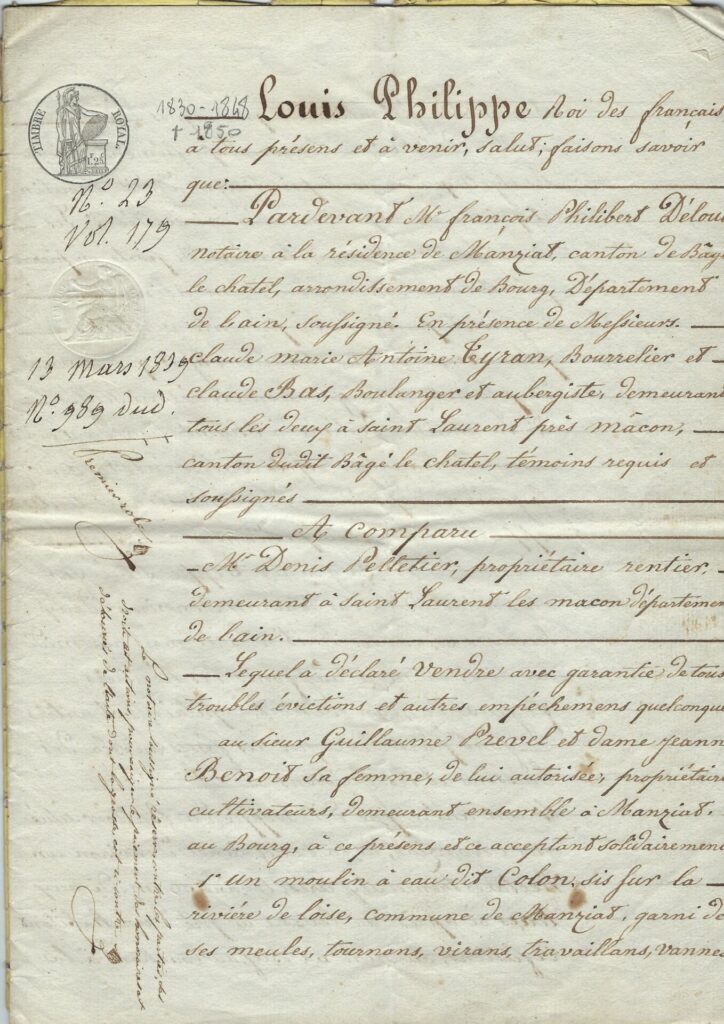 TIMBRE ROYAL.
1F.25
1830 - 1848
† 1850
N.º 23
Vol. 179
13 mars 1839
N.º 989 dud.
Premier rôle
Louis Philippe Roi des français
à tous présens et à venir, salut; faisons savoir
que:
Pardevant Mr françois Philibert Délou
notaire à la résidence de Manziat, canton de Bâgé
le chatel, arrondissement de Bourg, Département
de lain, soussigné. En présence de Messieurs.
claude marie Antoine Tyran, Bourrelier et
claude Bas, Boulanger et aubergiste, demeurant
tous les deux à saint Laurent près mâcon,
canton dudit Bâgé le chatel, témoins requis et
soussignés
A comparu
Mr Denis Pelletier, propriétaire rentier,
demeurant à saint Laurent les macon départemen
de lain.
Lequel a déclaré vendre avec garantie de tous
troubles évictions et autres empéchemens quelconque
au sieur Guillaume Prevel et dame jeann
Benoit sa femme, de lui autorisée, propriétaire
cultivateurs, demeurant ensemble à Manziat.
au Bourg, à ce présens et ce acceptant solidairement
1º un moulin à eau dit Colon, sis sur la
riviére de loise, commune de Manziat, garni de
ses meules, tournons, virans, travaillans, vannes
Le notaire soussigné